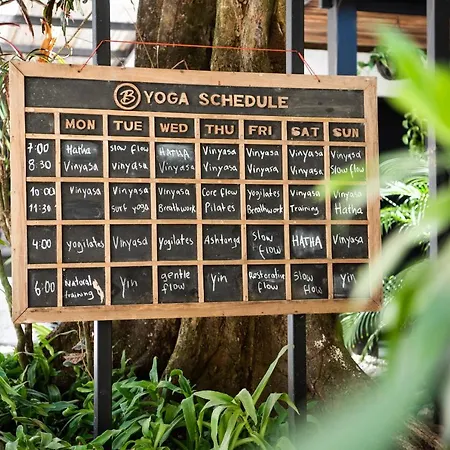 B YOGA SCHEDULE
MON TUE WED THU FRI SAT SUN
7:00 Hatha Slow flow HATHA Vinyasa Vinyasa Vinyasa Vinyasa
8:30 Vinyasa Vinyasa Vinyasa Vinyasa Vinyasa Vinyasa Slow flow
10:00 Vinyasa Vinyasa Vinyasa Core flow yogilates Vinyasa Vinyasa
11:30 Surf yoga Breathwork Pilates Breathwork Training Hatha
4:00 yogilates Vinyasa Yogilates Ashtanga Slow flow HATHA Vinyasa
6:00 Natural training Yin gentle flow Yin Restorative flow Slow flow Yin